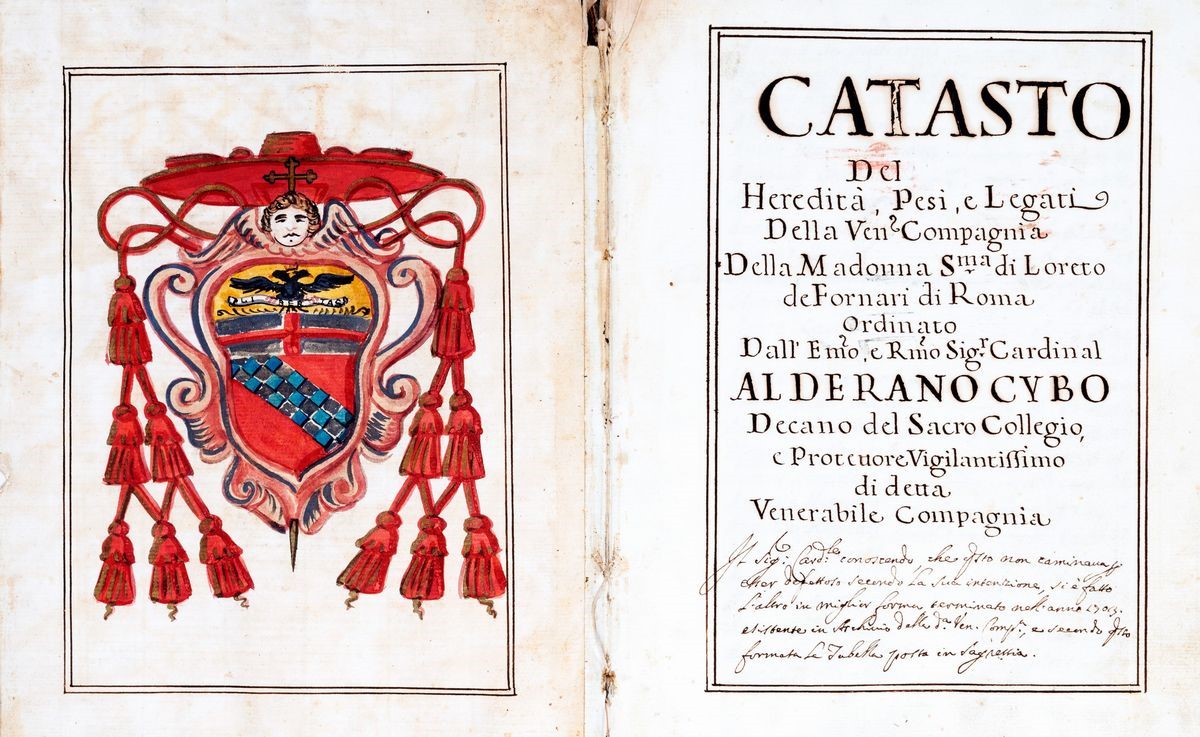 LIBERTAS
CATASTO
Del
Heredità, Pesi, e Legati
Della Ven.e Compagnia
Della Madonna S.ma di Loreto
de Fornari di Roma
Ordinato
Dall' Emo, e Rmo Sig.r Cardinal
ALDERANO CYBO
Decano del Sacro Collegio,
e Protettore Vigilantissimo
di detta
Venerabile Compagnia
Il Sig.r Card.le conoscendo, che qsto non caminava p
esser difettoso secondo la sua intenzione, si è fatto
l'altro in miglior forma terminato nell'anno 1703.
esistente in Archivio della d.a Ven. Comp.a, e secondo qsto
formata la Tabella posta in Sagrestia.